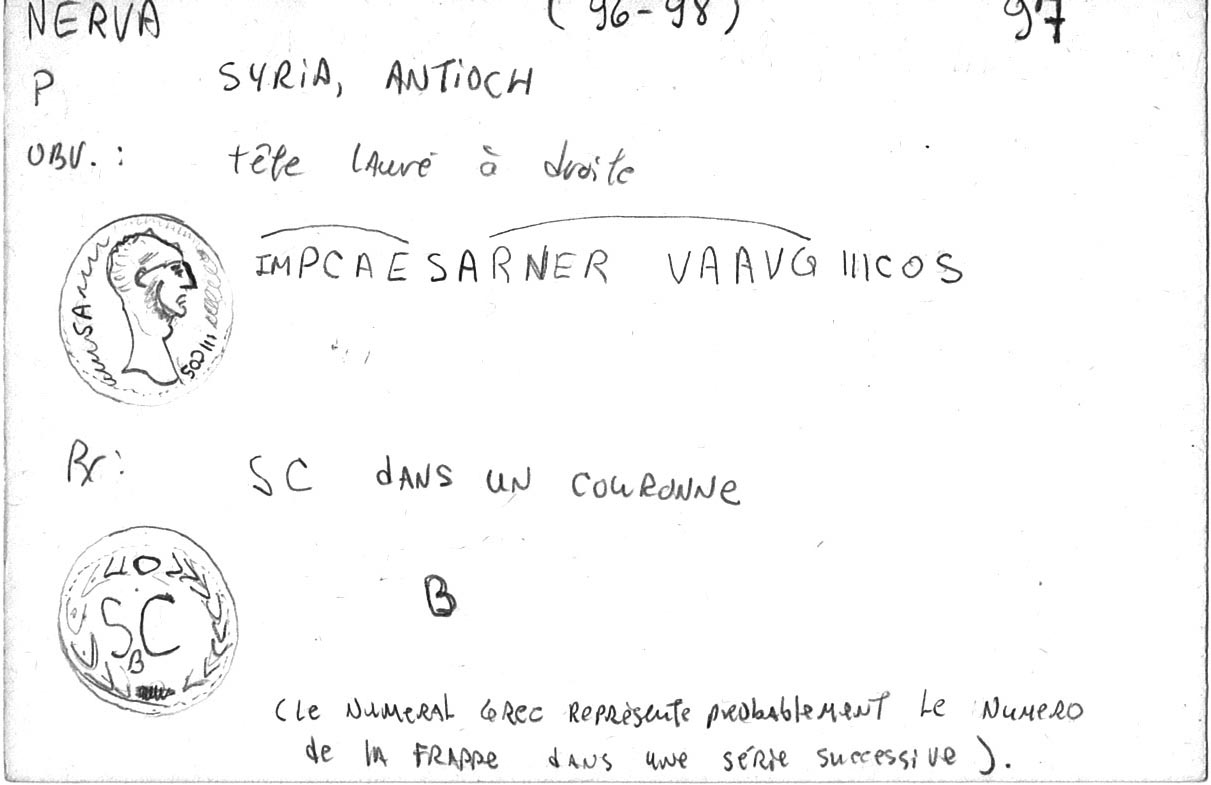 NERVA (96-98) 97
P SYRIA, ANTIOCH
OBV. : tête lAuré à droite
IMPCAESARNER VAAVG IIICOS
SA IIICOS
Br: SC dANS UN COURONNE
SC
B
B
(Le NUMERAL GREC REPRÈSENTE PROBABLEMENT Le NUMERO
de lA FRAPPE dANS UNE SÉRIE SUCCESSIVE).